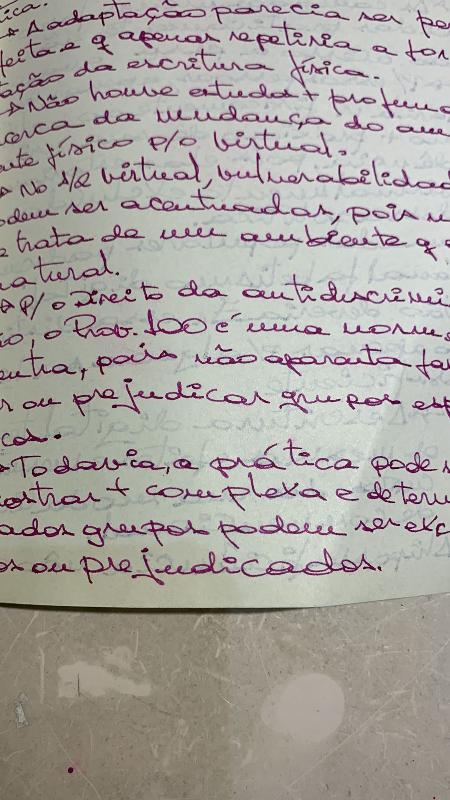 ica.
→ A adaptação parecia ser per
feita e q apenas repetiria a for
ação da escritura física.
→ Não houve estudo + profund
cerca da mudança do am
ente físico p/o virtual.
→ No virtual, vulnerabilidad
odem ser acentuadas, pois n
e trata de um ambiente q
natural.
→ P/ o Direito da antidiscrimi
ão, o Prov. 100 é uma norma
eutra, pois não aparenta fav
er ou prejudicar grupos esp
cos.
→ Todavia, a prática pode s
ostrar + complexa e determ
ados grupos podem ser exc
os ou prejudicados.